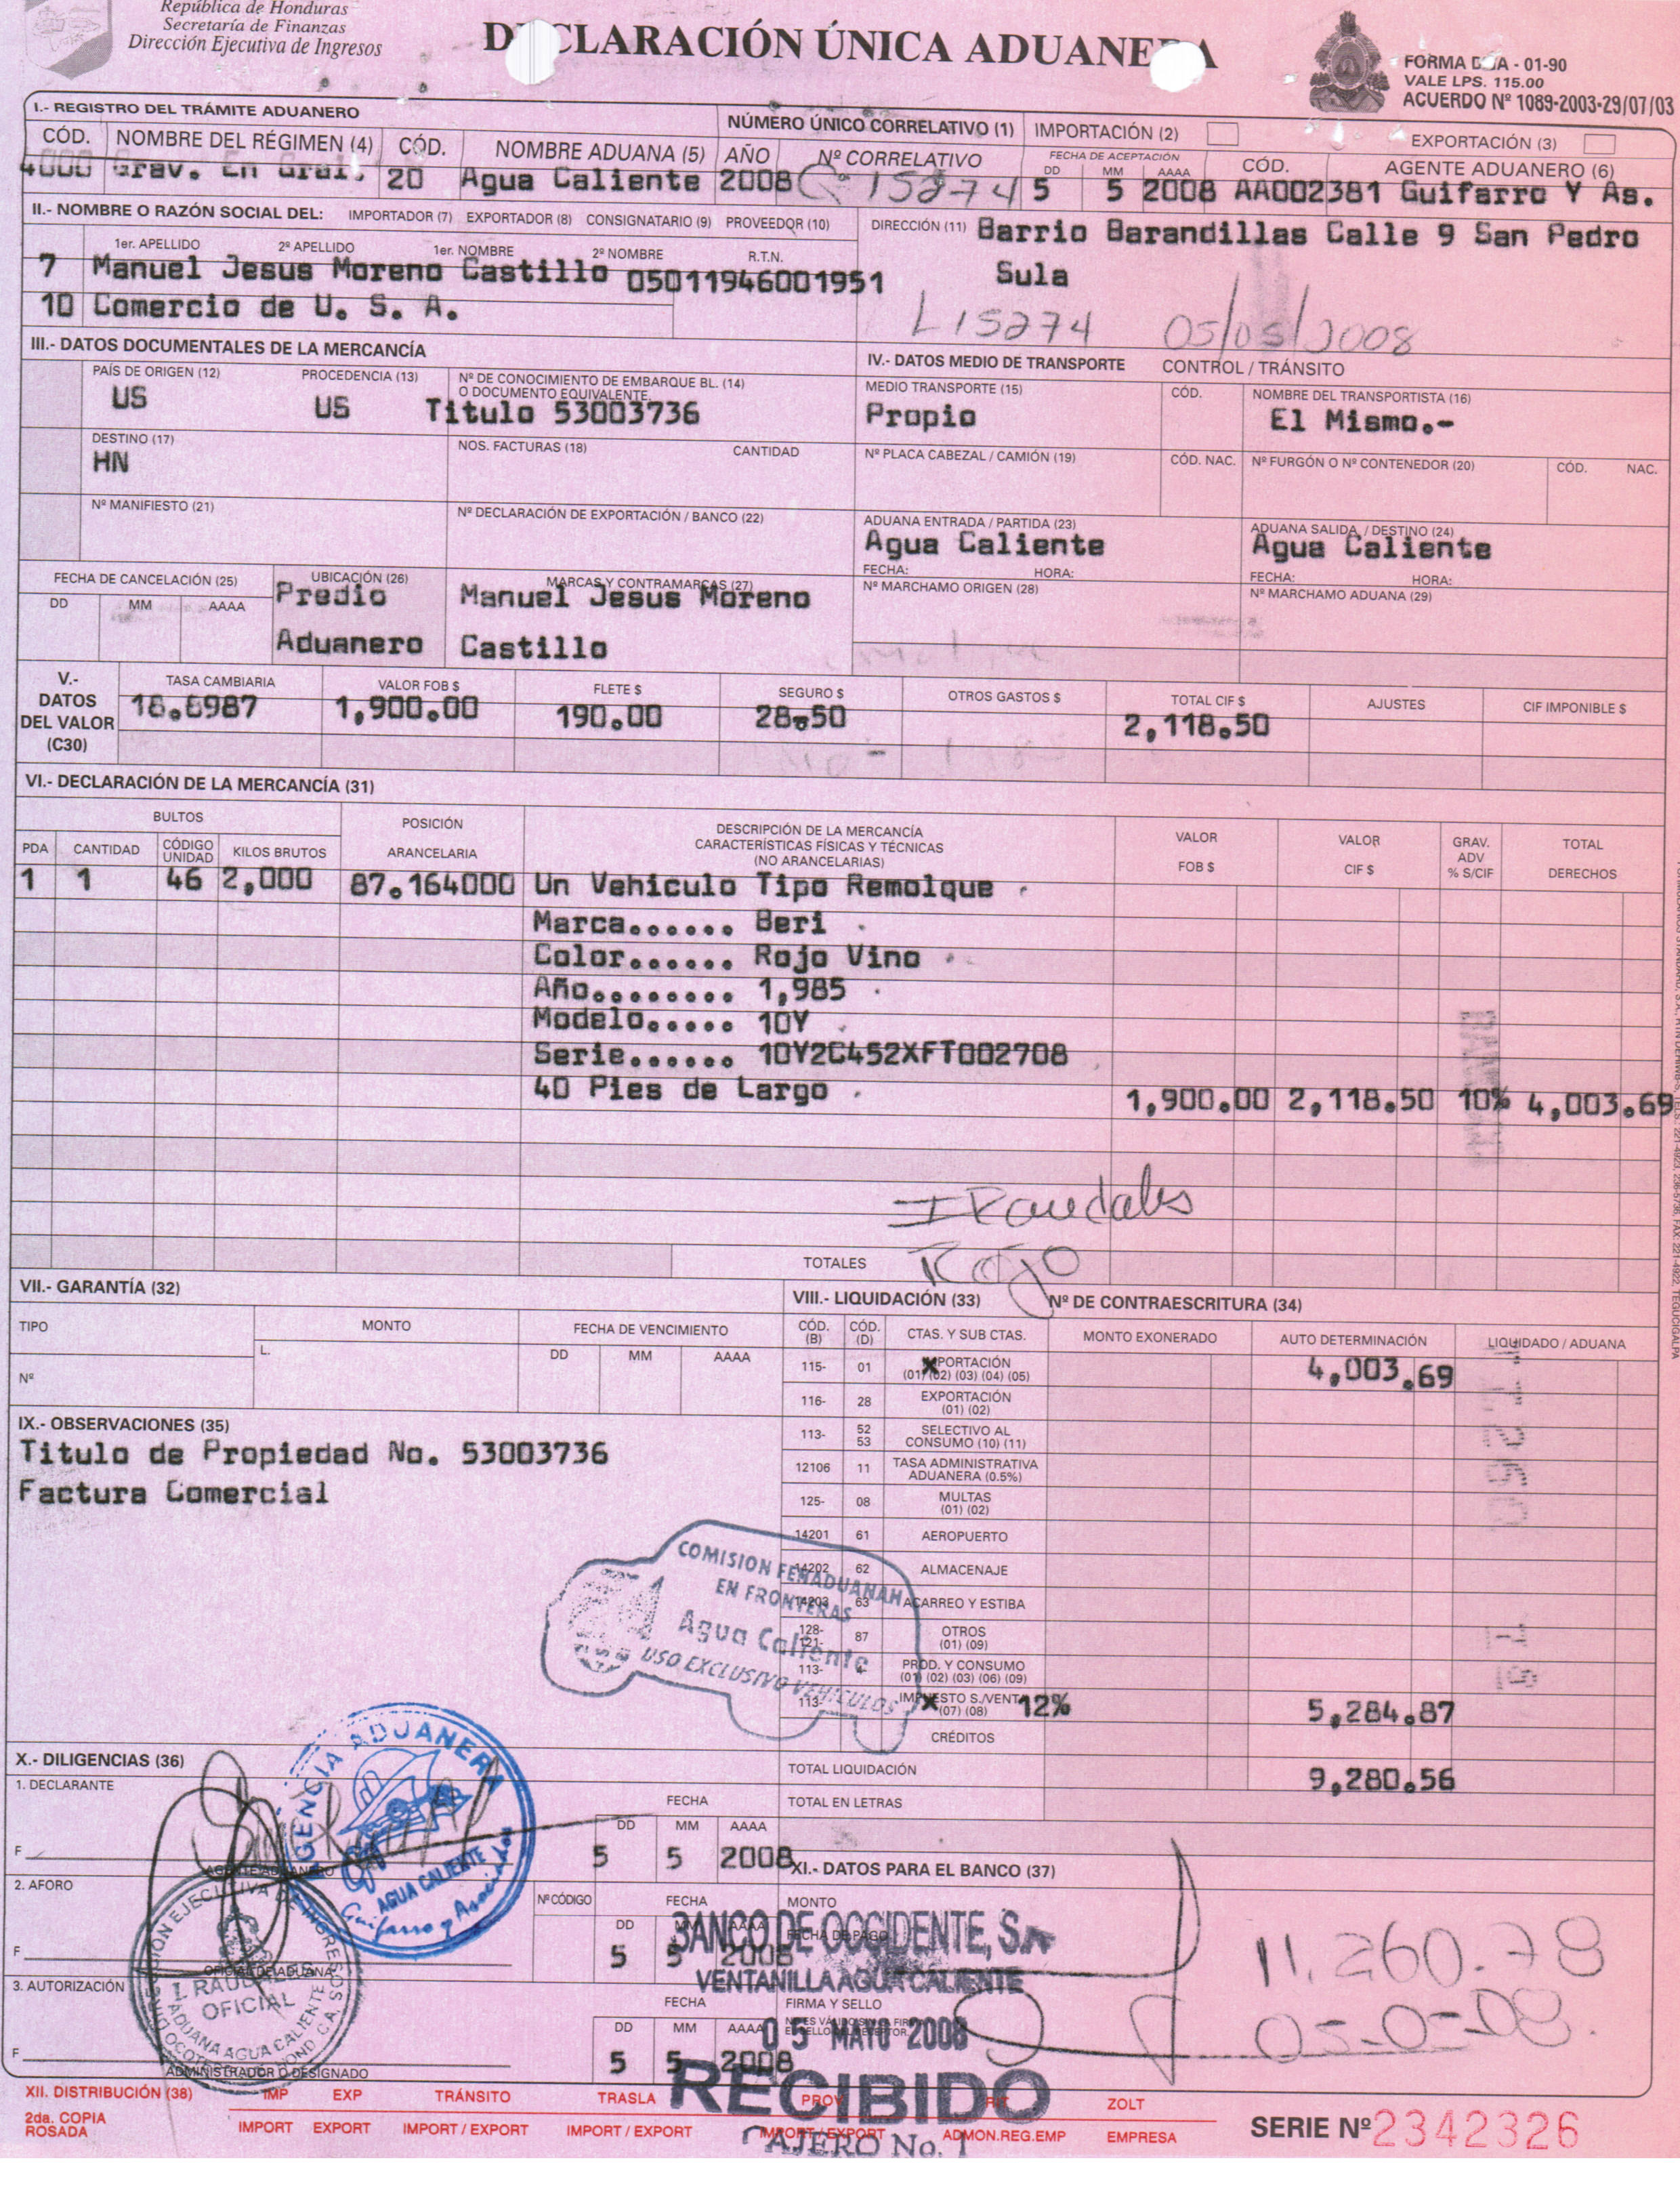 República de Honduras
Secretaría de Finanzas
Dirección Ejecutiva de Ingresos
DECLARACIÓN ÚNICA ADUANERA
FORMA DUA - 01-90
VALE LPS. 115.00
ACUERDO Nº 1089-2003-29/07/03
I.- REGISTRO DEL TRÁMITE ADUANERO
NÚMERO ÚNICO CORRELATIVO (1) IMPORTACIÓN (2) EXPORTACIÓN (3)
CÓD. NOMBRE DEL RÉGIMEN (4) CÓD. NOMBRE ADUANA (5) AÑO Nº CORRELATIVO FECHA DE ACEPTACIÓN DD MM AAAA CÓD. AGENTE ADUANERO (6)
4000 Grav. En Gral. 20 Agua Caliente 2008 15274 5 5 2008 AA002381 Guifarro Y As.
II.- NOMBRE O RAZÓN SOCIAL DEL: IMPORTADOR (7) EXPORTADOR (8) CONSIGNATARIO (9) PROVEEDOR (10) DIRECCIÓN (11) Barrio Barandillas Calle 9 San Pedro
1er. APELLIDO 2º APELLIDO 1er. NOMBRE 2º NOMBRE R.T.N.
7 Manuel Jesus Moreno Castillo 05011946001951 Sula
10 Comercio de U. S. A.
L15274 05/05/2008
III.- DATOS DOCUMENTALES DE LA MERCANCÍA
IV.- DATOS MEDIO DE TRANSPORTE CONTROL / TRÁNSITO
PAÍS DE ORIGEN (12) PROCEDENCIA (13) Nº DE CONOCIMIENTO DE EMBARQUE BL. (14) O DOCUMENTO EQUIVALENTE. MEDIO TRANSPORTE (15) CÓD. NOMBRE DEL TRANSPORTISTA (16)
US US Titulo 53003736 Propio El Mismo.-
DESTINO (17) NOS. FACTURAS (18) CANTIDAD Nº PLACA CABEZAL / CAMIÓN (19) CÓD. NAC. Nº FURGÓN O Nº CONTENEDOR (20) CÓD. NAC.
HN
Nº MANIFIESTO (21) Nº DECLARACIÓN DE EXPORTACIÓN / BANCO (22) ADUANA ENTRADA / PARTIDA (23) ADUANA SALIDA / DESTINO (24)
Agua Caliente Agua Caliente
FECHA: HORA: FECHA: HORA:
FECHA DE CANCELACIÓN (25) UBICACIÓN (26) MARCAS Y CONTRAMARCAS (27) Nº MARCHAMO ORIGEN (28) Nº MARCHAMO ADUANA (29)
DD MM AAAA Predio Manuel Jesus Moreno
Aduanero Castillo
V.- DATOS DEL VALOR (C30)
TASA CAMBIARIA VALOR FOB $ FLETE $ SEGURO $ OTROS GASTOS $ TOTAL CIF $ AJUSTES CIF IMPONIBLE $
18.8987 1,900.00 190.00 28.50 2,118.50
VI.- DECLARACIÓN DE LA MERCANCÍA (31)
BULTOS POSICIÓN ARANCELARIA DESCRIPCIÓN DE LA MERCANCÍA CARACTERÍSTICAS FÍSICAS Y TÉCNICAS (NO ARANCELARIAS) VALOR FOB $ VALOR CIF $ GRAV. ADV % S/CIF TOTAL DERECHOS
PDA CANTIDAD CÓDIGO UNIDAD KILOS BRUTOS
1 1 46 2,000 87.164000 Un Vehiculo Tipo Remolque
Marca...... Beri
Color...... Rojo Vino
Año........ 1,985
Modelo..... 10Y
Serie...... 10Y2C452XFT002708
40 Pies de Largo 1,900.00 2,118.50 10% 4,003.69
TOTALES Rojo
VII.- GARANTÍA (32)
VIII.- LIQUIDACIÓN (33) Nº DE CONTRAESCRITURA (34)
TIPO MONTO FECHA DE VENCIMIENTO
L. DD MM AAAA
Nº
CÓD. (B) CÓD. (D) CTAS. Y SUB CTAS. MONTO EXONERADO AUTO DETERMINACIÓN LIQUIDADO / ADUANA
115- 01 IMPORTACIÓN (01) (02) (03) (04) (05) X 4,003.69
116- 28 EXPORTACIÓN (01) (02)
IX.- OBSERVACIONES (35)
Titulo de Propiedad No. 53003736
Factura Comercial
113- 52 53 SELECTIVO AL CONSUMO (10) (11)
12106 11 TASA ADMINISTRATIVA ADUANERA (0.5%)
125- 08 MULTAS (01) (02)
14201 61 AEROPUERTO
14202 62 ALMACENAJE
14203 63 ACARREO Y ESTIBA
128- 121- 87 OTROS (01) (09)
113- 4- PROD. Y CONSUMO (01) (02) (03) (06) (09)
113- IMPUESTO S./VENTA (07) (08) X 12% 5,284.87
CRÉDITOS
COMISION FENADUANAH
EN FRONTERAS
Agua Caliente
USO EXCLUSIVO VEHICULOS
TOTAL LIQUIDACIÓN 9,280.56
TOTAL EN LETRAS
X.- DILIGENCIAS (36)
1. DECLARANTE
FECHA
DD MM AAAA
F 5 5 2008
AGENTE ADUANERO
AGENCIA ADUANERA
AGUA CALIENTE
Guifarro y Asociados
XI.- DATOS PARA EL BANCO (37)
2. AFORO Nº CÓDIGO FECHA MONTO
DD MM AAAA FECHA DE PAGO
F 5 5 2008
OFICIAL DE ADUANA
BANCO DE OCCIDENTE, S.A.
VENTANILLA AGUA CALIENTE
11,260.78
DIRECCION EJECUTIVA DE INGRESOS
OFICIAL
ADUANA AGUA CALIENTE
3. AUTORIZACIÓN FECHA FIRMA Y SELLO
DD MM AAAA
05 MAYO 2008
F 5 5 2008
ADMINISTRADOR O DESIGNADO
RECIBIDO
CAJERO No. 1
XII. DISTRIBUCIÓN (38) IMP EXP TRÁNSITO TRASLA PROV RIT ZOLT
2da. COPIA ROSADA IMPORT EXPORT IMPORT / EXPORT IMPORT / EXPORT IMPORT / EXPORT ADMON.REG.EMP EMPRESA
SERIE Nº 2342326